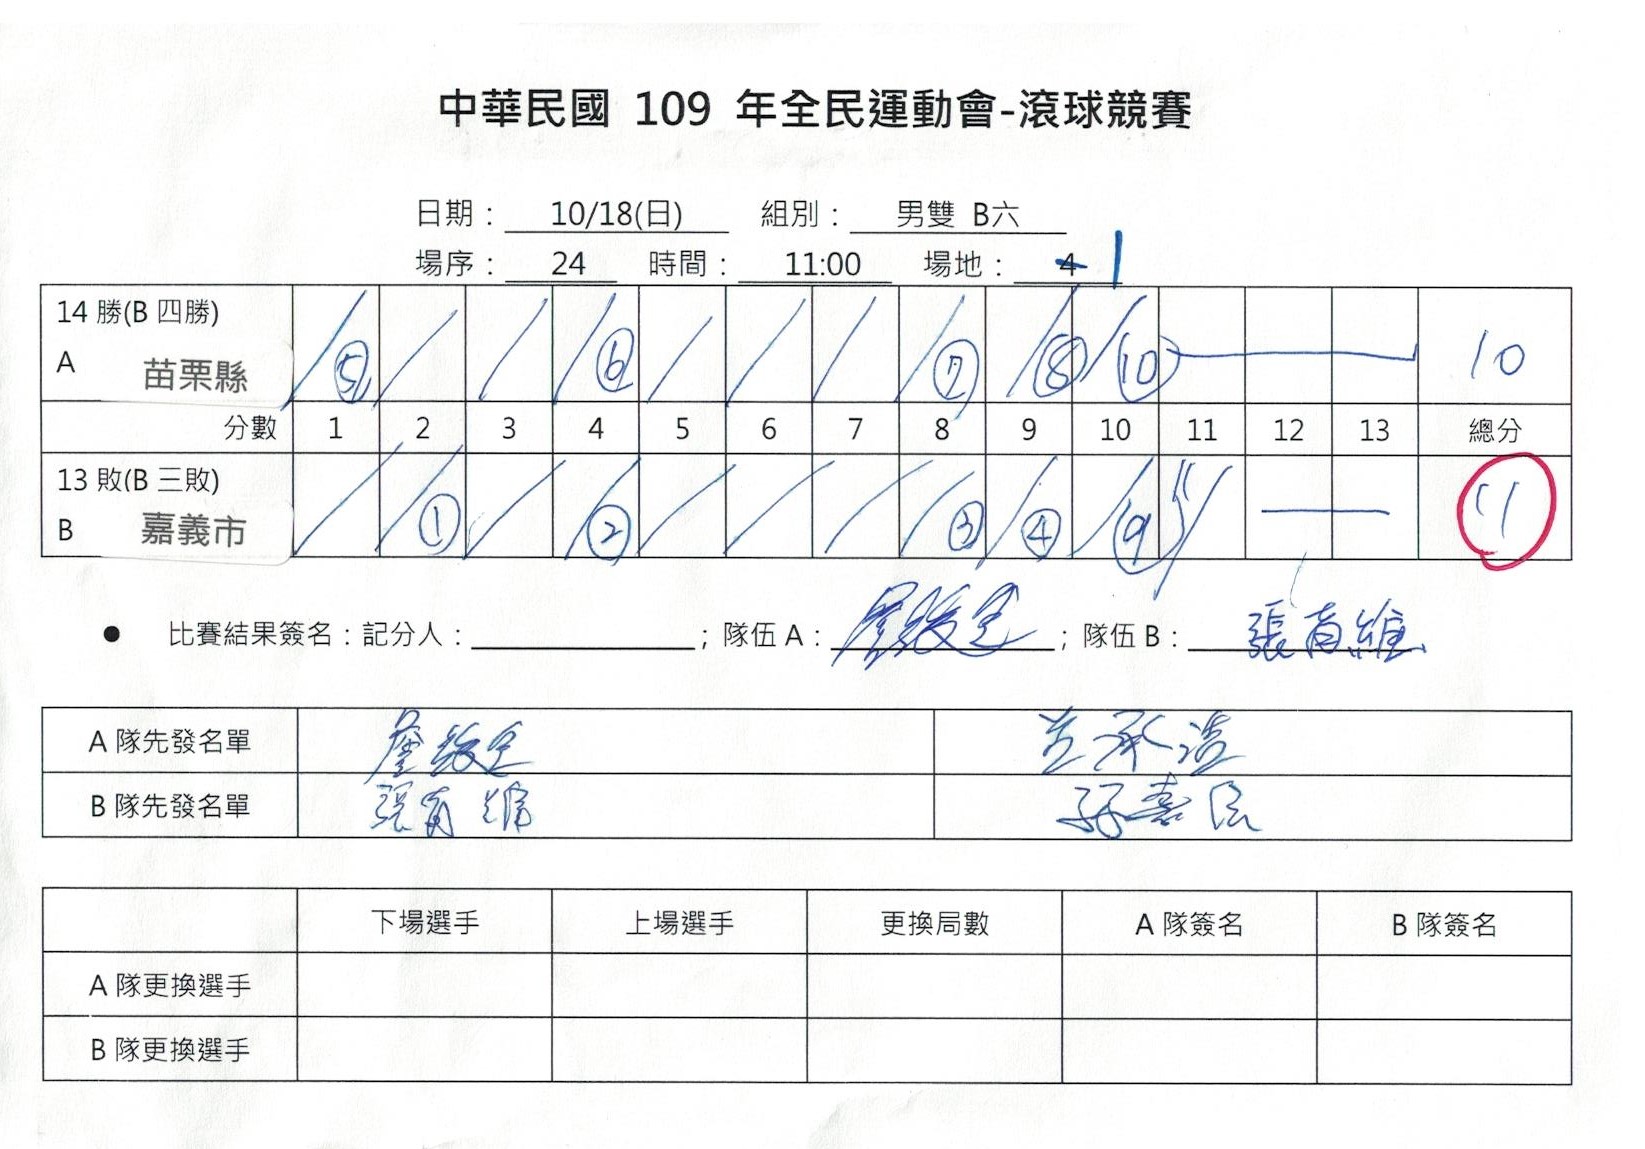 中華民國 109 年全民運動會-滾球競賽
日期： 10/18(日) 組別： 男雙 B六
場序： 24 時間： 11:00 場地： 4 1
14 勝(B 四勝)
A 苗栗縣 ⑤ ⑥ ⑦ ⑧ ⑩ 10
分數 1 2 3 4 5 6 7 8 9 10 11 12 13 總分
13 敗(B 三敗)
B 嘉義市 ① ② ③ ④ ⑨ 11 11
● 比賽結果簽名：記分人： ；隊伍 A： ；隊伍 B： 張育維
A 隊先發名單
B 隊先發名單 張育維
下場選手 上場選手 更換局數 A 隊簽名 B 隊簽名
A 隊更換選手
B 隊更換選手